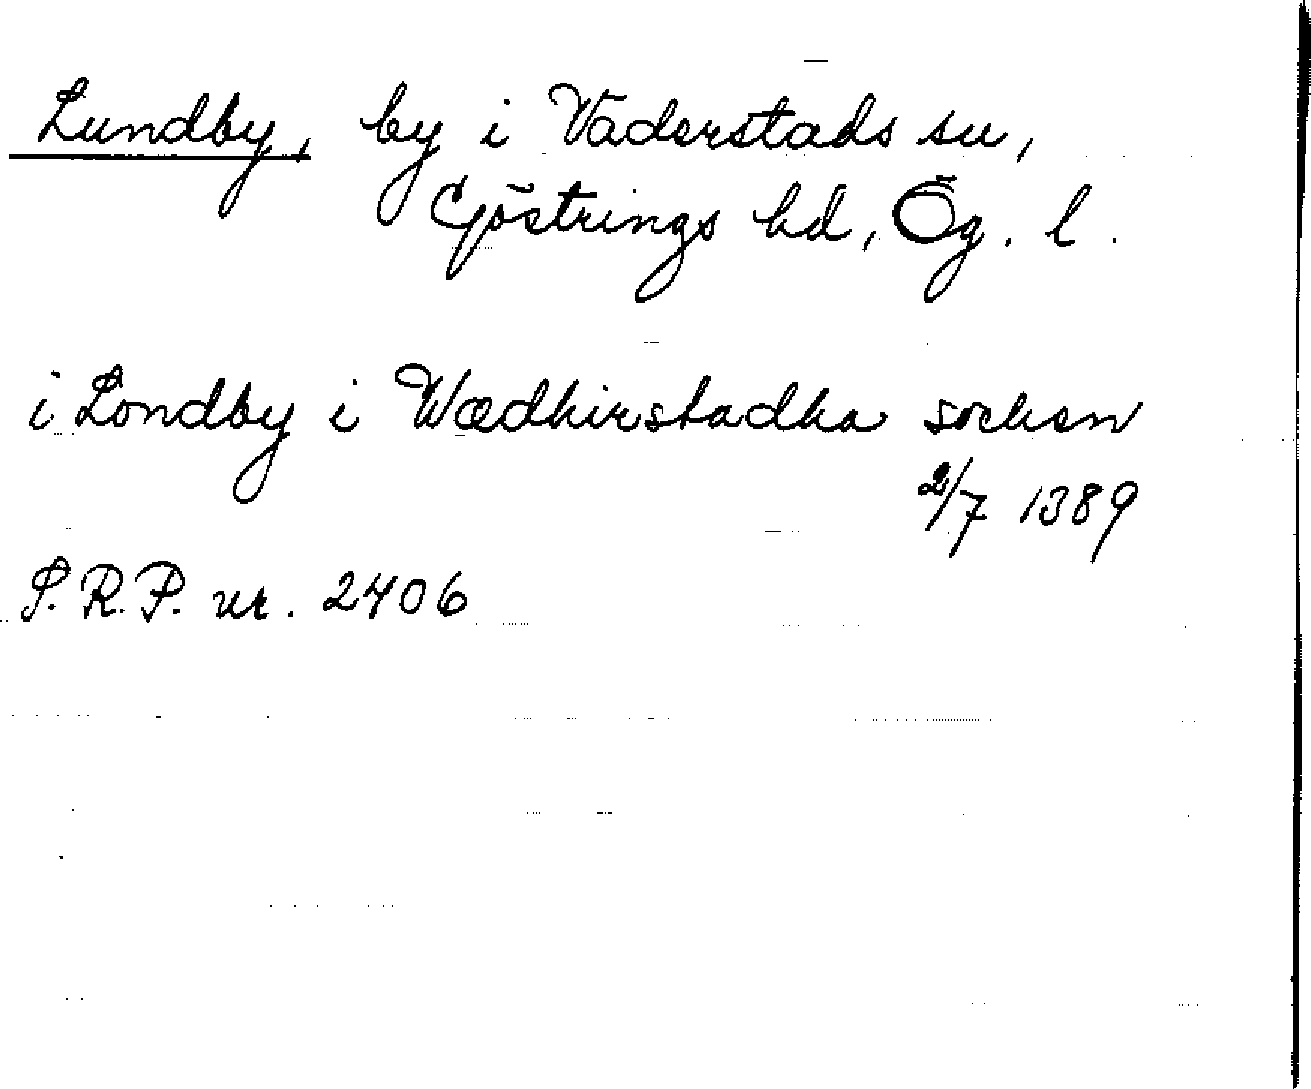 Lundby, by i Väderstads sn,
Göstrings hd, Ög. l.
i Londby i Wædhirstadha sochen
2/7 1389
S.R.P. nr. 2406